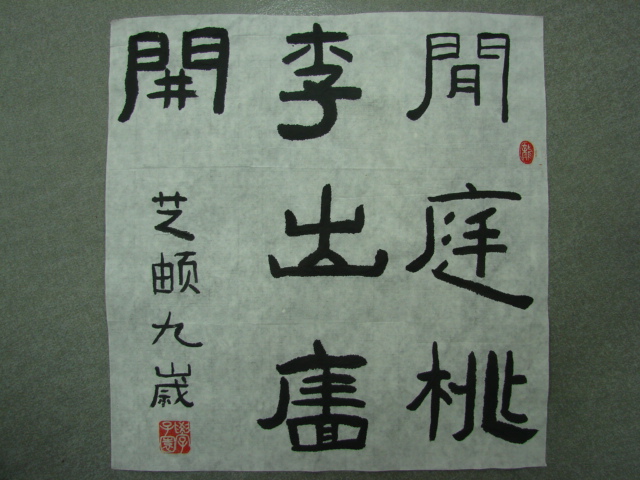 閒庭桃
李出廧
開
芝頔九歲